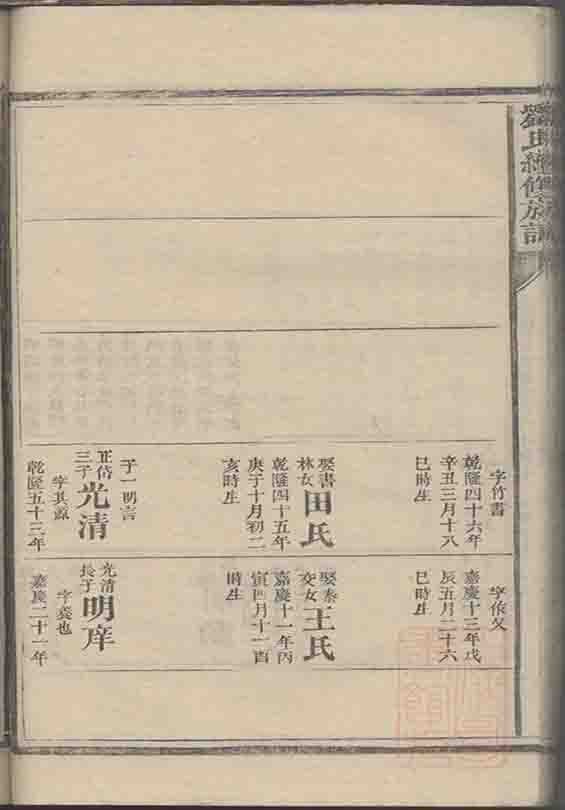 劉氏續修族譜
字竹書
乾隆四十六年
辛丑三月十八
巳時生
娶書
林女
田氏
乾隆四十五年
庚子十月初二
亥時生
子一明言
正岱
三子
光清
字其源
乾隆五十三年
字依父
嘉慶十三年戊
辰五月二十六
巳時生
娶泰
交女
王氏
嘉慶十一年丙
寅四月十一酉
時生
光清
長子
明庠
字養也
嘉慶二十一年